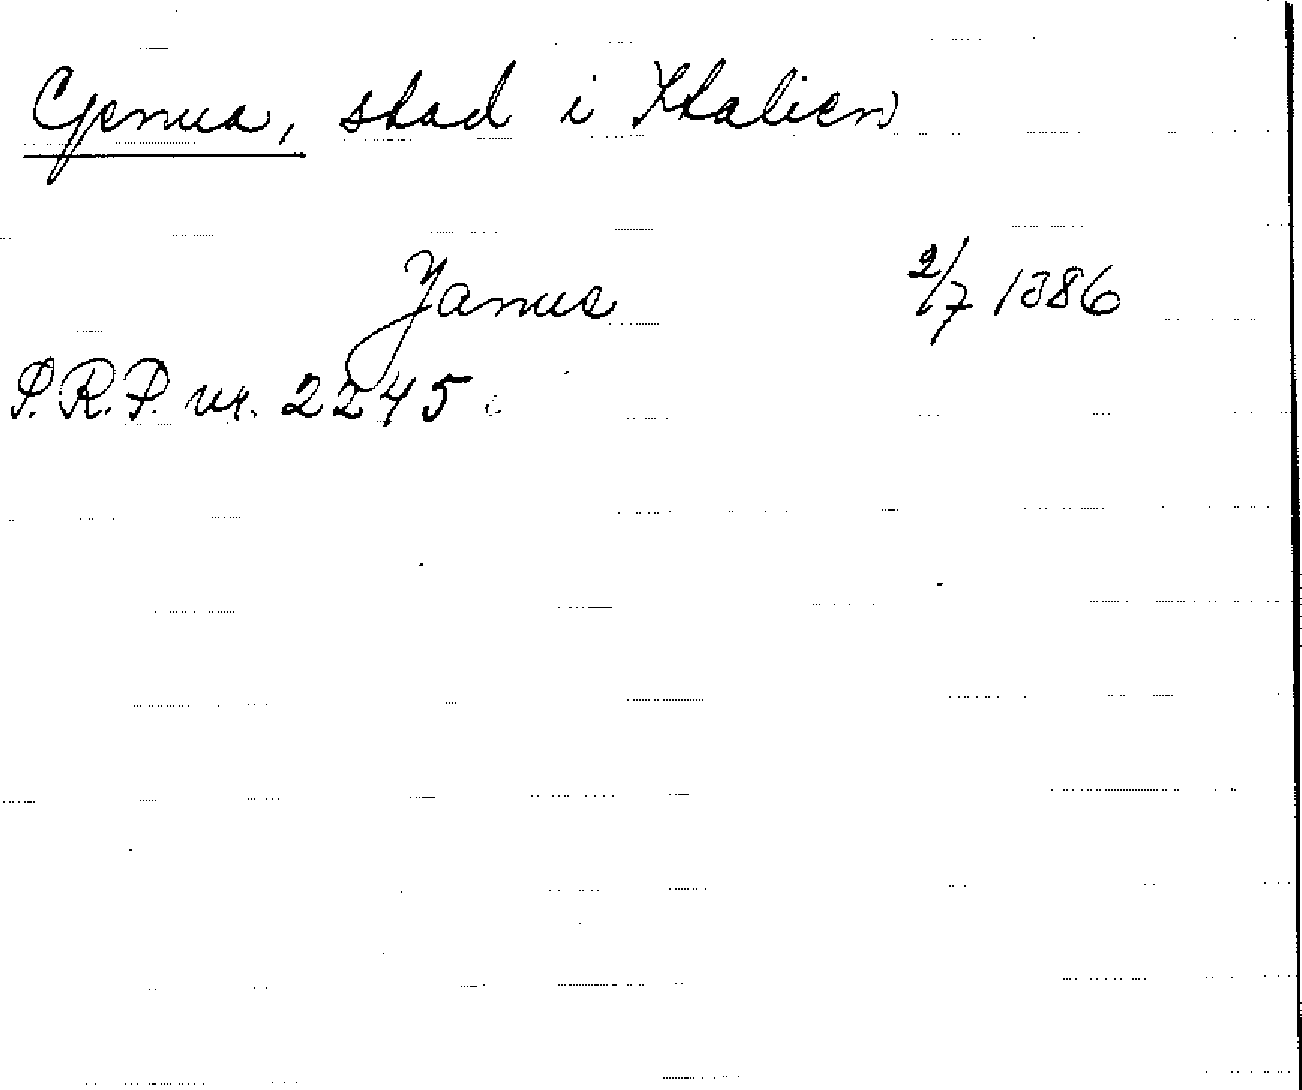 Genua, stad i Italien
Janue 2/7 1386
S.R.P. nr. 2245